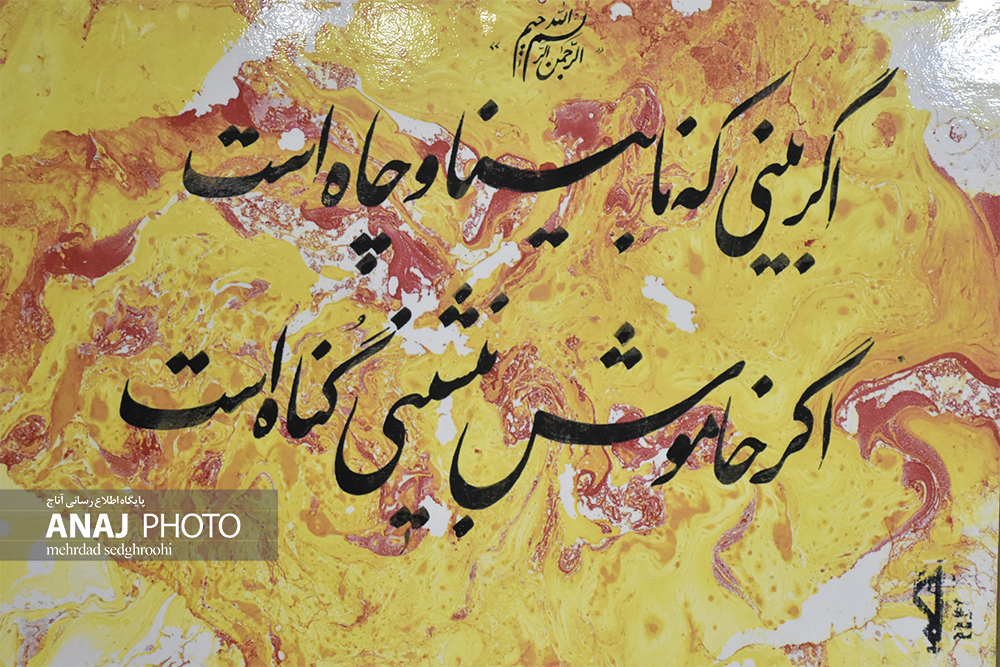 بسم الله
الرحمن الرحیم
اگر بینی که نابینا و چاه است
اگر خاموش بنشینی گناه است
پایگاه اطلاع رسانی آناج
ANAJ PHOTO
mehrdad sedghroohi